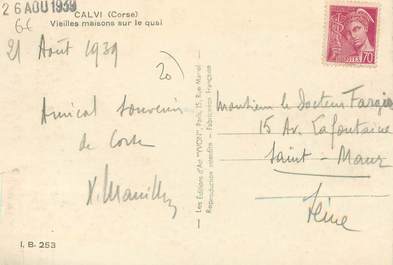 26 AOU 1939
CALVI (Corse)
Vieilles maisons sur le quai
21 Août 1939
20
POSTES 70
Amical souvenir
de Corse
Monsieur le Docteur
15 Av. Lafontaine
Saint-Maur
Seine
Les Editions d'Art "YVON", Paris, 15, Rue Martel
Reproduction interdite - Fabrication Française
I. B. 253